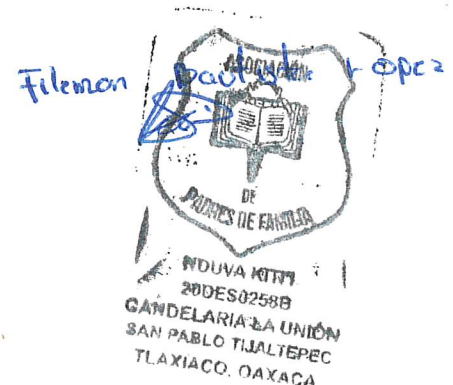 Filemon Bautista Lopez
ASOCIACIÓN
DE
PADRES DE FAMILIA
20DES0258B
CANDELARIA LA UNIÓN
SAN PABLO TIJALTEPEC
TLAXIACO, OAXACA